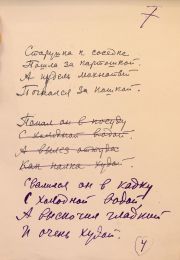 7
Старушка к соседке
Пошла за картошкой
А пудель мохнатый
Погнался за кошкой.
Попал он в посуду
С холодной водой.
А вылез оттуда
Как палка худой.
Свалился он в кадку
С холодной водой
А выскочил гладкий
И очень худой.
4